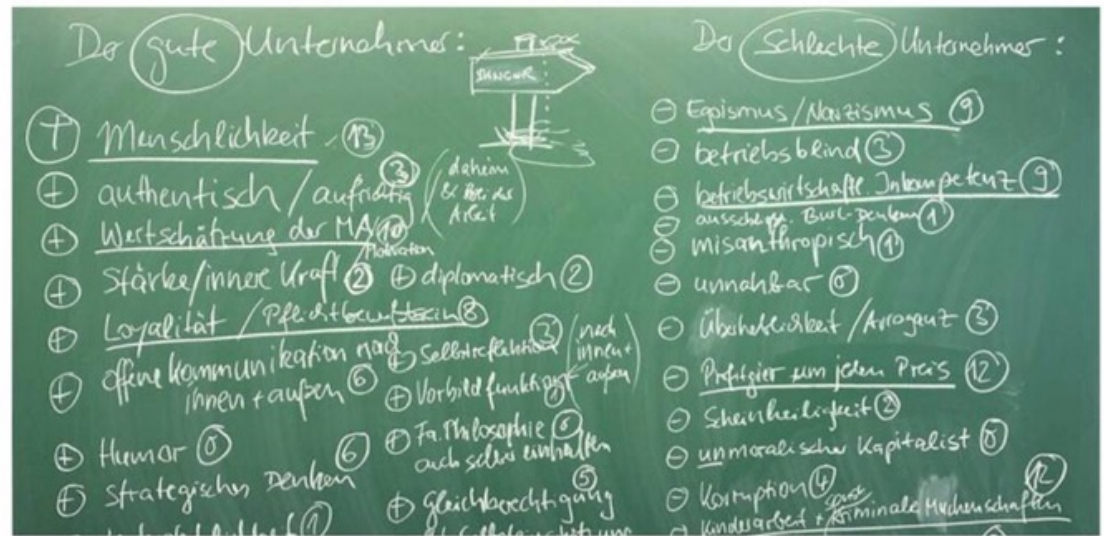 Der gute Unternehmer:
DANGER
+ Menschlichkeit 13
+ authentisch / aufrichtig 3 (daheim & bei der Arbeit)
+ Wertschätzung der MA 10
Motivation
+ Stärke/innere Kraft 2
+ Loyalität / Pflichtbewusstsein 8
+ offene Kommunikation nach
innen + außen 6
+ Humor 0
+ Strategisches Denken 6
+ diplomatisch 2
+ Selbstreflektion 3 (nach innen + außen)
+ Vorbildfunktion 1
+ Fa. Philosophie
auch selber einhalten
+ Gleichberechtigung 5
Der Schlechte Unternehmer:
- Egoismus/Narzismus 9
- betriebsblind 3
- betriebswirtschaftl. Inkompetenz 9
- ausschließl. BWL-Denken 1
- misanthropisch 1
- unnahbar 0
- Überheblichkeit / Arroganz 3
- Profitgier um jeden Preis 12
- Scheinheiligkeit 2
- unmoralischer Kapitalist 0
- Korruption 4
Kinderarbeit + sonst. kriminelle Machenschaften 12